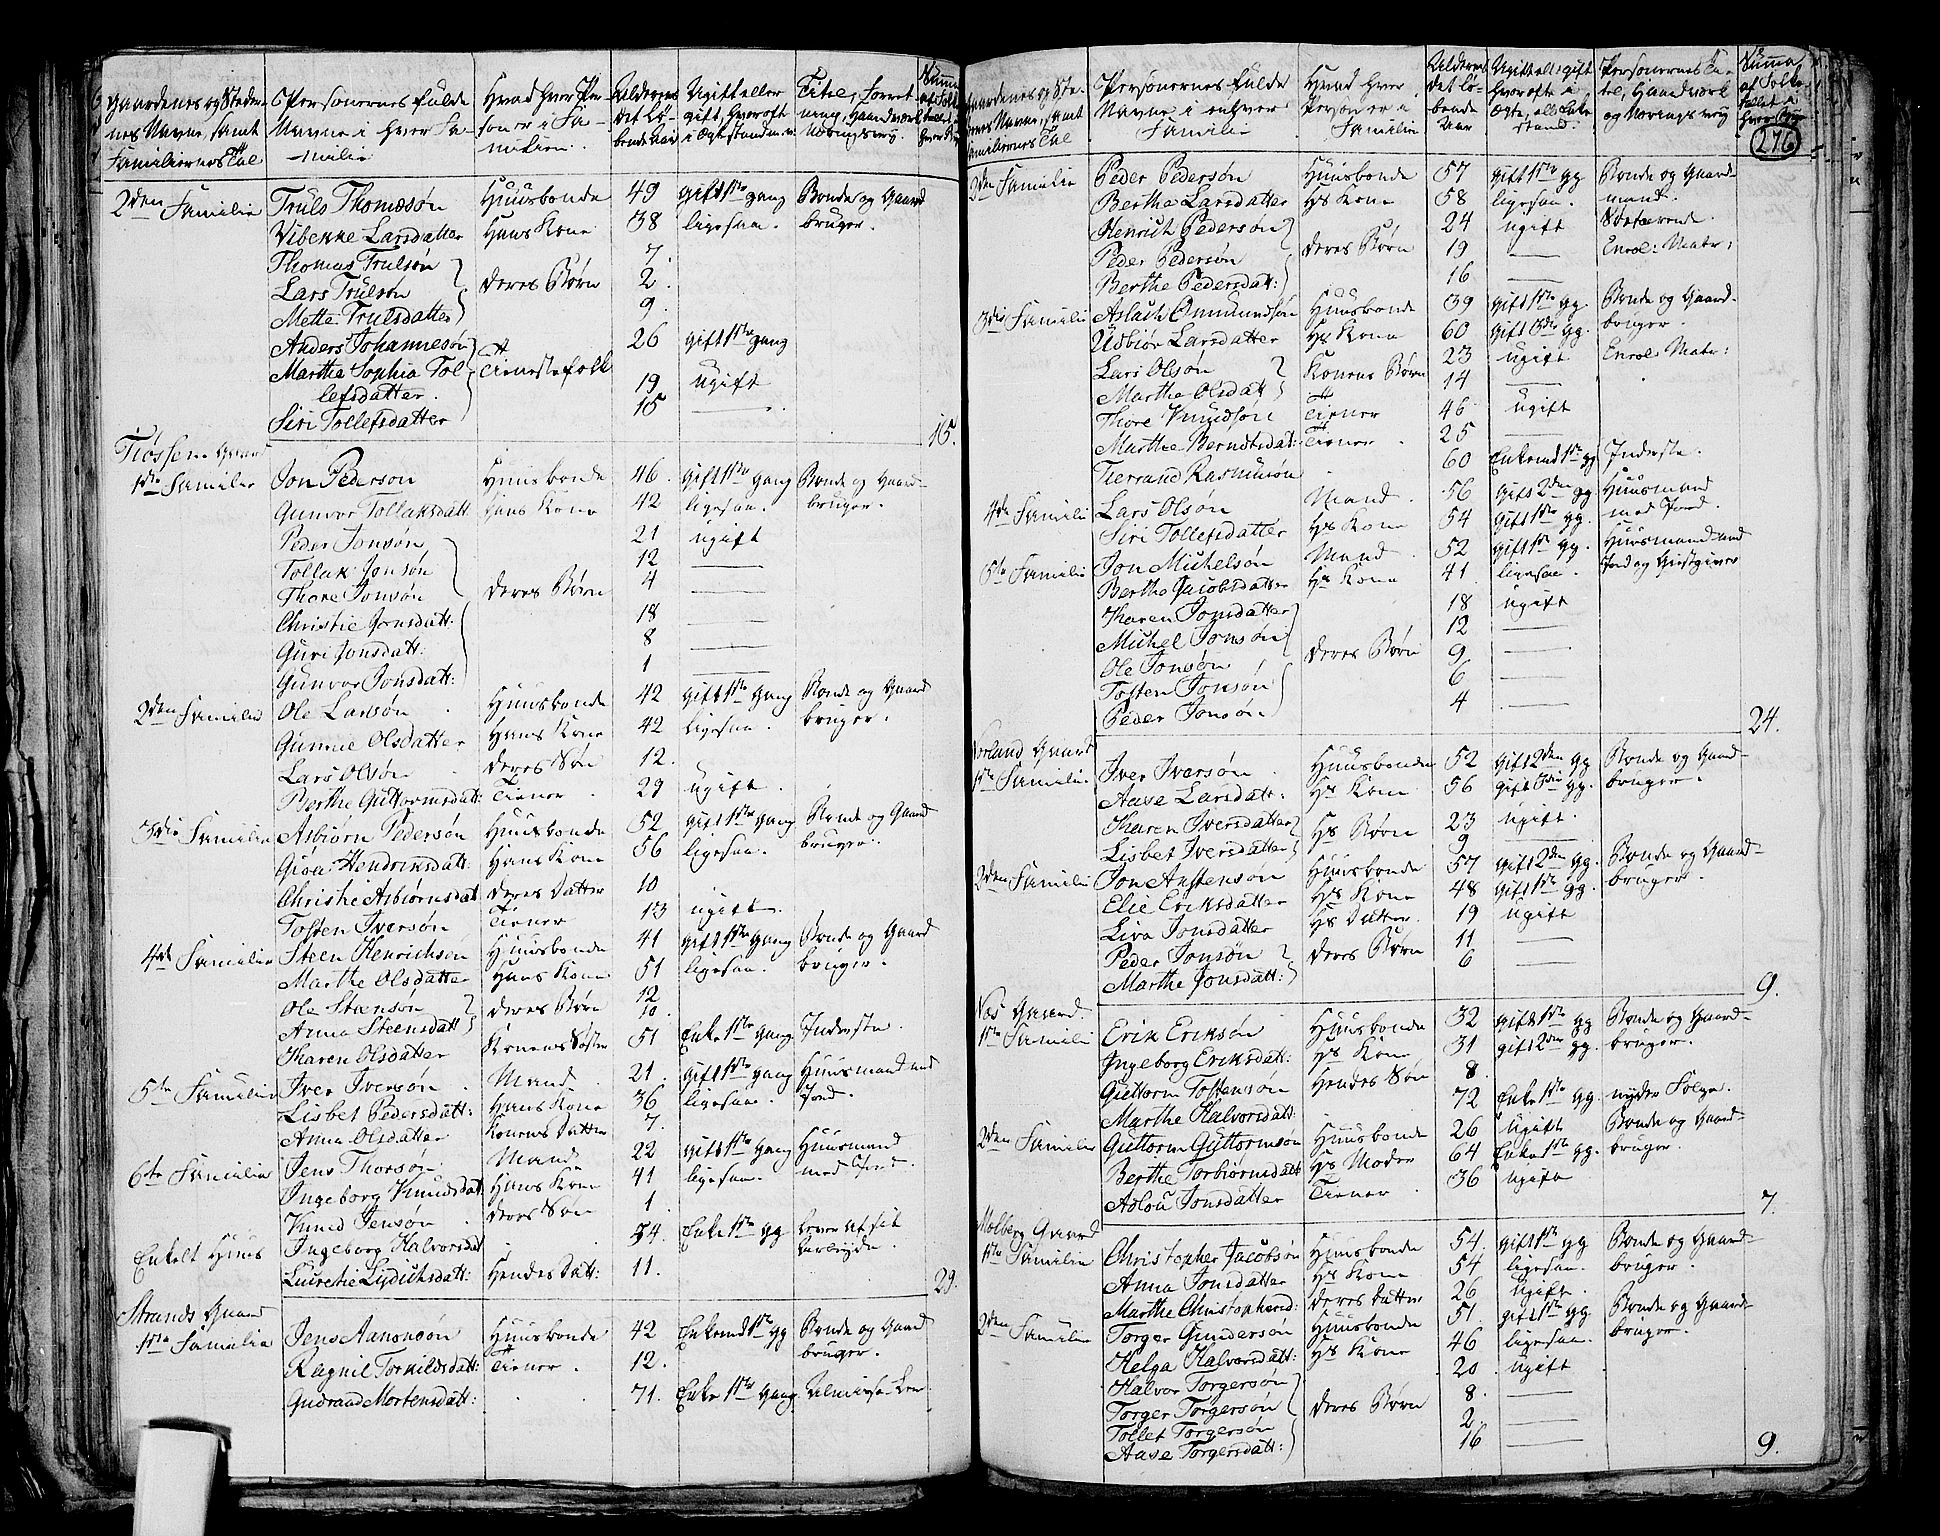 Gaardenes og Stedernes Navne, samt Familiernes Tal | Personernes fulde Navne i hver Familie | Hvad hver Person er i Familien | Alderens det løbende Aar | Ugift eller gift, hvorofte i Egtestanden | Titel, Forretning, Haandværk, Næringsvej
2den Familie | Truls Thomesøn | Huusbonde | 49 | gift 1ste gang | Bonde og Gaard
Vibekke Larsdatter | Hans Kone | 38 | ligesaa. | bruger.
Thomas Trulsøn | 7.
Lars Trulsøn | deres Børn | 2.
Mette Trulsdatter | 9.
Anders Johannesøn | 26 | gift 1ste gang
Martha Sophia Tol | Tienestefolk
lefsdatter. | 19 | ugift
Siri Tollefsdatter | 15 | —— | 15.
Tiøssem Gaard
1ste Familie | Jon Pederson | Huusbonde | 46. | gift 1ste gang | Bonde og Gaard-
Gunvor Tollaksdatt | Hans Kone | 42 | ligesaa. | bruger.
Peder Jonsøn | 21 | ugift
Tollak Jonsøn | 12 | ——
Thore Jonsøn | deres Børn | 4 | ——
Christie Jonsdatt: | 18 | ——
Guri Jonsdatt: | 8 | ——
Gunvor Jonsdatt: | 1 | ——
2den Familie | Ole Larsøn | Huusbonde | 42 | gift 1ste gang | Bonde og Gaard
Gunnie Olsdatter | Hans Kone | 42 | ligesaa. | bruger.
Lars Olsøn | deres Søn | 12.
Berthe Guttormsdatt: | Tiener | 29 | ugift.
3die Familie | Asbiørn Pedersøn | Huusbonde | 52 | gift 1ste gang | Bonde og Gaard
Giøa Hendrichsdatt: | Hans Kone | 56 | ligesaa. | bruger.
Christie Asbiørnsdat | deres Datter | 10
Tosten Iversøn | Tiener | 13 | ugift.
4de Familie | Steen Henrichsøn | Huusbonde | 41 | gift 1ste gang | Bonde og Gaard
Marthe Olsdatter | Hans Kone | 51 | ligesaa. | bruger.
Ole Steensøn | deres Børn | 12
Anna Steensdatt | 10.
Karen Olsdatter | Konens Søster | 51 | Enke 1ste gang | Inderste.
5te Familie | Iver Iversøn | Mand. | 21. | gift 1ste gang | Huusmand med
Lisbet Pedersdatt: | Hans Kone | 36 | ligesaa. | Jord.
Anna Olsdatter | Konens Datter | 7.
6te Familie | Jens Thorsøn | Mand | 22 | gift 1ste gang | Huusmand
Ingeborg Knudsdat: | Hans Kone | 41 | ligesaa. | med Jord.
Knud Jensøn | deres Søn | 1.
Enkelt Huus | Ingeborg Halvorsdat | 74. | Enke 1ste gg | lever af sit Arbeyde.
Lucretie Lydichsdatt: | Hendes Datt: | 11. | 29.
Strands Gaard
1ste Familie | Jens Aanonsøn | Huusbonde | 42 | Enkemd 1ste gg | Bonde og Gaard
Ragnil Torkildsdatt: | Tiener. | 12. | bruger.
Gudraad Mortensdatt: | 71. | Enke 1ste gang | Almisse-Lem
Gaardenes og Stedernes Navne, samt Familiernes Tal | Personernes fulde Navne i enhver Familie | Hvad hver Person er i Familien | Alderens det løbende Aar | Ugift ell: gift hvorofte i Egte, ell: Enkestand: | Personernes Titel, Haandværk og Nærings vej | Summa af Folketallet i hver Gaard
276
2den Familie | Peder Pedersøn | Huusbonde | 57 | gift 1ste gg | Bonde og Gaard-
Berthe Larsdatter | Hs Kone | 58 | ligesaa. | mand.
Henrich Pedersøn | 24 | ugift | Søefarende.
Peder Pedersøn | deres Børn | 19 | —— | Enrol: Matr:
Berthe Pedersdat: | 16 | ——
3die Familie | Aslach Ommundsøn | Huusbonde | 39 | gift 1ste gg | Bonde og Gaard-
Udbiør Larsdatter | Hs Kone | 60 | gift 3die gg. | bruger.
Lars Olsøn | Konens Børn | 23 | ugift | Enrol: Matr:
Marthe Olsdatt | 14 | ——
Thore Knudsøn | Tiener | 46 | ugift
Marthe Berndtsdat: | Tiener. | 25 | ——
Tierrand Rasmusøn | 60 | Enkemd 1ste gg | Inderste.
4de Familie | Lars Olsøn | Mand. | 56 | gift 2den gg | Huusmand
Siri Tollefsdatter | Hs Kone | 54 | gift 1ste gg. | med Jord.
5te Familie | Jon Michelsøn | Mand. | 52 | gift 1ste gg. | Huusmand med
Berthe Jacobsdatter | Hs Kone | 41. | ligesaa. | Jord og Giestgiver
Karen Jonsdatter | 18 | ugift
Michel Jonsøn | 12 | ——
Ole Jonsøn | deres Børn | 9 | ——
Tosten Jonsøn | 6 | ——
Peder Jonsøn | 4 | —— | 24.
Verland Gaard
1ste Familie. | Iver Iversøn | Huusbonde | 52 | gift 2den gg | Bonde og Gaard-
Aase Larsdatt: | Hs Kone | 56 | gift 3die gg. | bruger.
Karen Iversdatter | Hs Børn | 23 | ugift.
Lisbet Iversdatter | 9 | ——
2den Familie | Jon Austenson | Huusbonde | 57 | gift 2den gg. | Bonde og Gaard-
Elie Eriksdatter | Hs Kone | 48 | gift 1ste gg. | bruger.
Liva Jonsdatter | Hs Datter. | 19 | ugift
Peder Jonsøn | deres Børn | 11 | ——
Marthe Jonsdatt: | 6 | —— | 9.
Næs Gaard.
1ste Familie | Erik Eriksøn | Huusbonde | 32 | gift 1ste gg | Bonde og Gaard-
Ingeborg Eriksdatt: | Hs Kone | 31 | gift 2den gg. | bruger.
Guttorm Tostensøn | Hendes Søn | 8
Marthe Halvorsdatt: | 72 | Enke 1ste gg. | nyder Folge.
2den Familie | Guttorm Guttormsøn | Huusbonde | 26 | ugift | Bonde og Gaard-
Berthe Torbiørnsdatt | Hs Moder | 64 | Enke 1ste gg. | bruger.
Aslou Jonsdatter | Tiener. | 36 | ugift | 7.
Molberg Gaard
1ste Familie | Christopher Jacobsøn | Huusbonde | 54. | gift 1ste gg | Bonde og Gaard-
Anna Jonsdatter | Hs Kone | 54 | ligesaa. | bruger.
Marthe Christophersd: | deres Datter | 26 | ugift.
2den Familie | Torger Gundersøn | Huusbonde | 51. | gift 1ste gg. | Bonde og Gaard-
Helga Halvorsdatt: | Hs Kone | 46 | ligesaa. | bruger.
Halvor Torgersøn | 20 | ugift
Torger Torgersøn | deres Børn | 8. | ——
Tollef Torgersøn | 2. | ——
Aase Torgersdatt: | 16 | —— | 9.